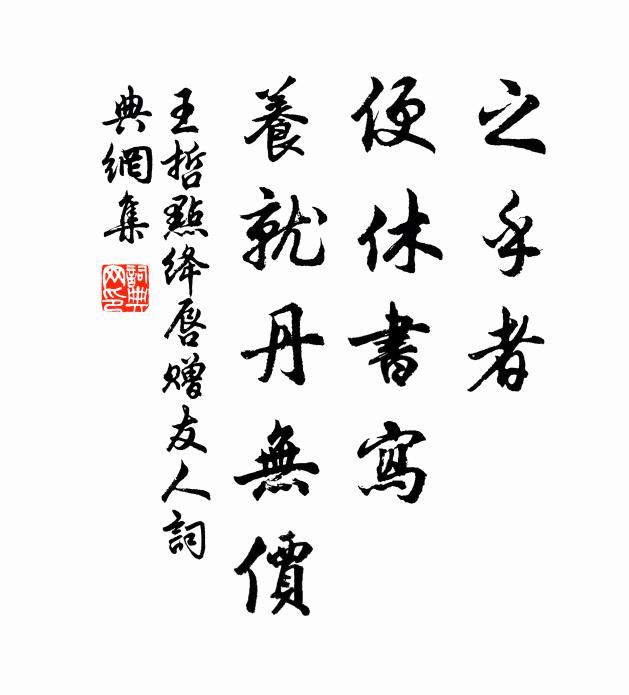 之乎者
便休書寫
養就丹無價
王哲點絳唇贈友人詞
典網集
詞典
网印